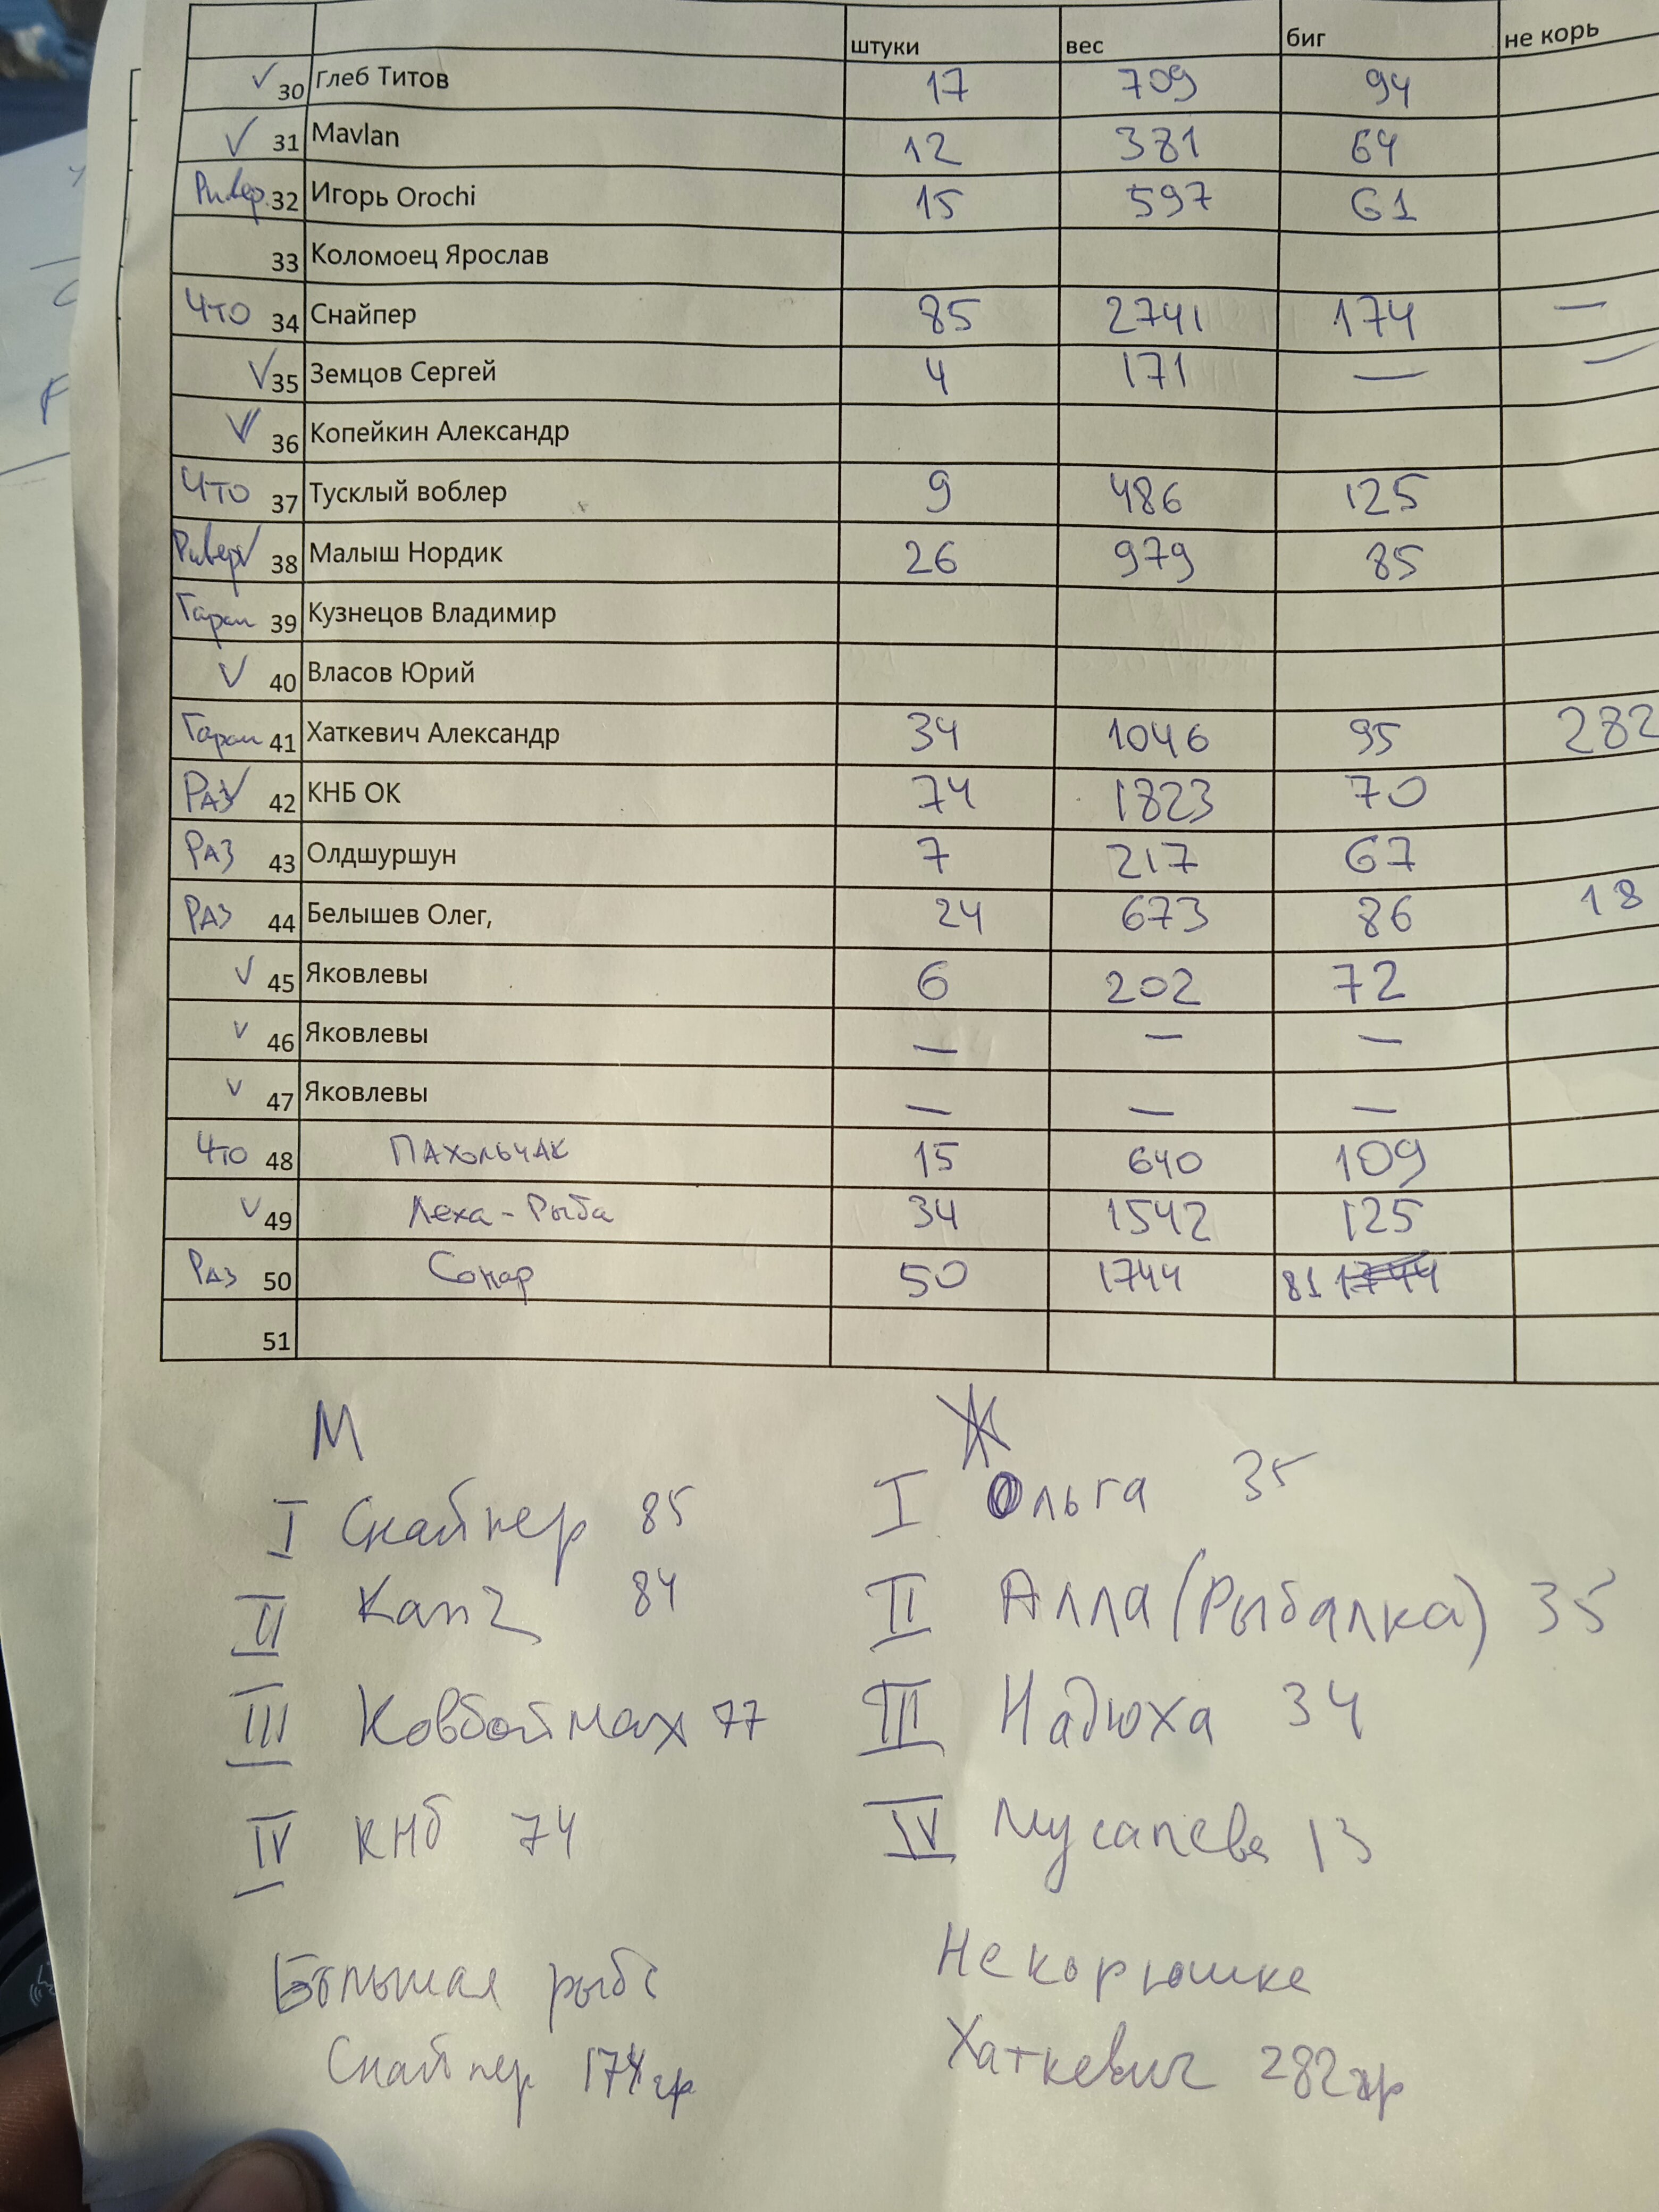 штуки вес биг не корь
✓ 30 Глеб Титов 17 709 94
✓ 31 Mavlan 12 381 64
Ривер. 32 Игорь Orochi 15 597 61
33 Коломоец Ярослав
Что 34 Снайпер 85 2741 174 —
✓ 35 Земцов Сергей 4 171 — —
✓ 36 Копейкин Александр
Что 37 Тусклый воблер 9 486 125
Ривер ✓ 38 Малыш Нордик 26 979 85
39 Кузнецов Владимир
✓ 40 Власов Юрий
41 Хаткевич Александр 34 1046 95 282
Раз ✓ 42 КНБ ОК 74 1823 70
Раз 43 Олдшуршун 7 217 67
Раз 44 Белышев Олег, 24 673 86 18
✓ 45 Яковлевы 6 202 72
✓ 46 Яковлевы — — —
✓ 47 Яковлевы — — —
Что 48 Пахольчак 15 640 109
✓ 49 Леха-Рыба 34 1542 125
Раз 50 Сонар 50 1744 81 1744
51
М Ж
I Снайпер 85 I Ольга 35
II Кап2 84 II Алла (Рыбалка) 35
III Ковбоймах 77 III Надюха 34
IV КНб 74 IV 13
Большая рыба Не корюшка
Снайпер 174гр Хаткевич 282гр